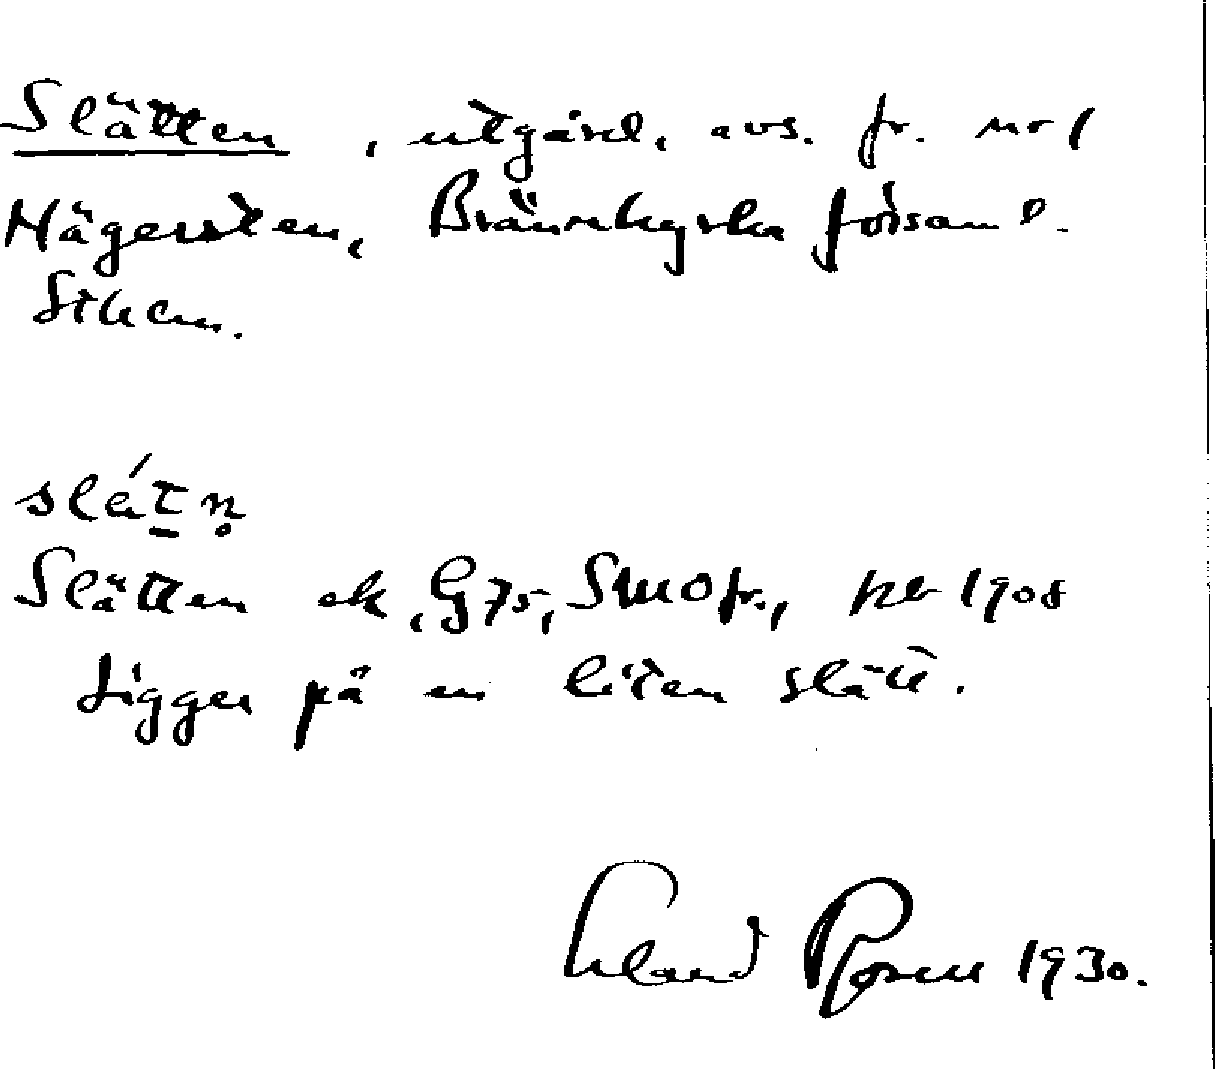 Slätten, utgård, avs. fr. nr 1
Hägersten, Brännkyrka församl.
Sthlm.
slátn̥
Slätten ek, G75, SMOfr., 1908
Ligger på en liten slätt.
Erland Rosell 1930.